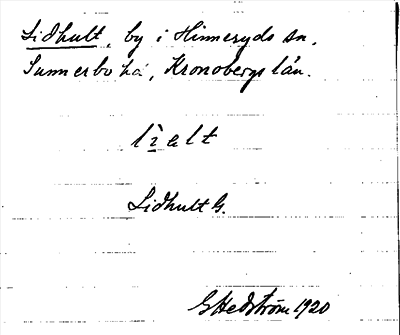 Lidhult, by i Hinneryds sn,
Sunnerbo hd, Kronobergs län.
lìalt
Lidhult G.
G Hedström 1920